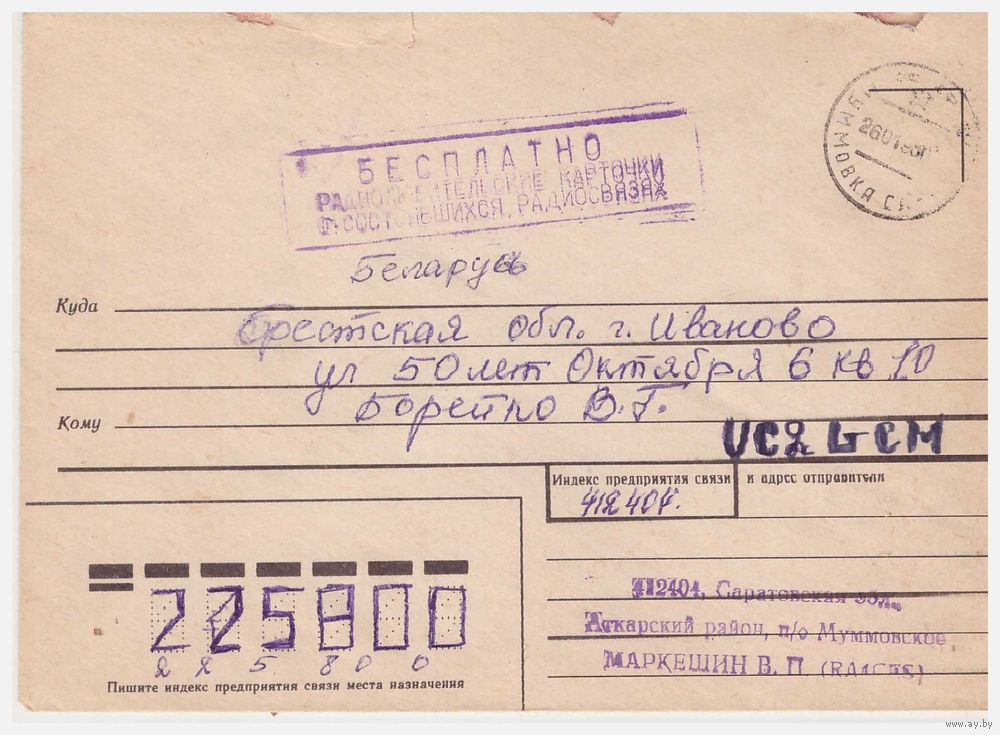 БЕСПЛАТНО
РАДИОЛЮБИТЕЛЬСКИЕ КАРТОЧКИ
О СОСТОЯВШИХСЯ РАДИОСВЯЗЯХ
Беларусь
Куда
Брестская обл. г. Иваново
ул 50 лет Октября 6 кв 10
Кому
Борейко В.Г.
UC2LCM
Индекс предприятия связи и адрес отправителя
412404.
412404, Саратовская обл.,
Аткарский район, п/о Муммовское
МАРКЕШИН В. П.
225800
225800
Пишите индекс предприятия связи места назначения
www.ay.by